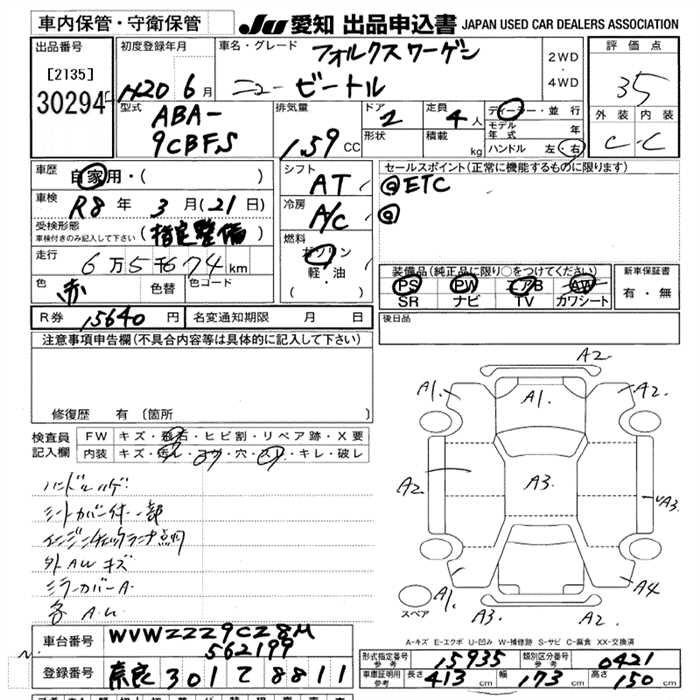 車内保管・守衛保管 JU 愛知 出品申込書 JAPAN USED CAR DEALERS ASSOCIATION
出品番号
[2135]
30294
初度登録年月
H20 6 月
車名・グレード フォルクスワーゲン
ニュービートル
2WD
・
4WD
評価点
35
外装 内装
C C
型式
ABA-
9CBFS
排気量
1.59 CC
ドア
2
形状
定員
4人
積載
kg
ディーラー・並行
モデル年式 年
ハンドル 左・右
車歴
自家用・( )
車検
R8 年 3 月(21日)
受検形態
車検付きのみ記入して下さい
(指定整備)
走行
6万5千674km
色
赤
色替
色コード
シフト
AT
冷房
A/C
燃料
ガソリン
軽・油
( )
セールスポイント(正常に機能するものに限ります)
@ETC
@
装備品(純正品に限り○をつけてください)
PS PW エアB AW
SR ナビ TV カワシート
新車保証書
有・無
R券 15640 円
名変通知期限 月 日
後日品
注意事項申告欄(不具合内容等は具体的に記入して下さい)
修復歴 有 〔箇所
検査員
記入欄
FW キズ・飛石・ヒビ割・リペア跡・X要
内装 キズ・汚レ・コゲ・穴・スレ・キレ・破レ
ハンドルハゲ
シートカバー付 一部
エンジンチェックランプ点灯
外AWキズ
ミラーカバーA
A2
A1
A1
A2
A2
A3
A3
A1
A4
A3
A2
スペア
A-キズ E-エクボ U-凹み W-補修跡 S-サビ C-腐食 XX-交換済
車台番号
WVWZZZ9CZ8M
562199
登録番号 奈良 301 て 8811
形式指定番号
参考
15935
類別区分番号
参考
0421
車庫証明用
参考
長さ 413 cm 幅 173 cm 高さ 150 cm